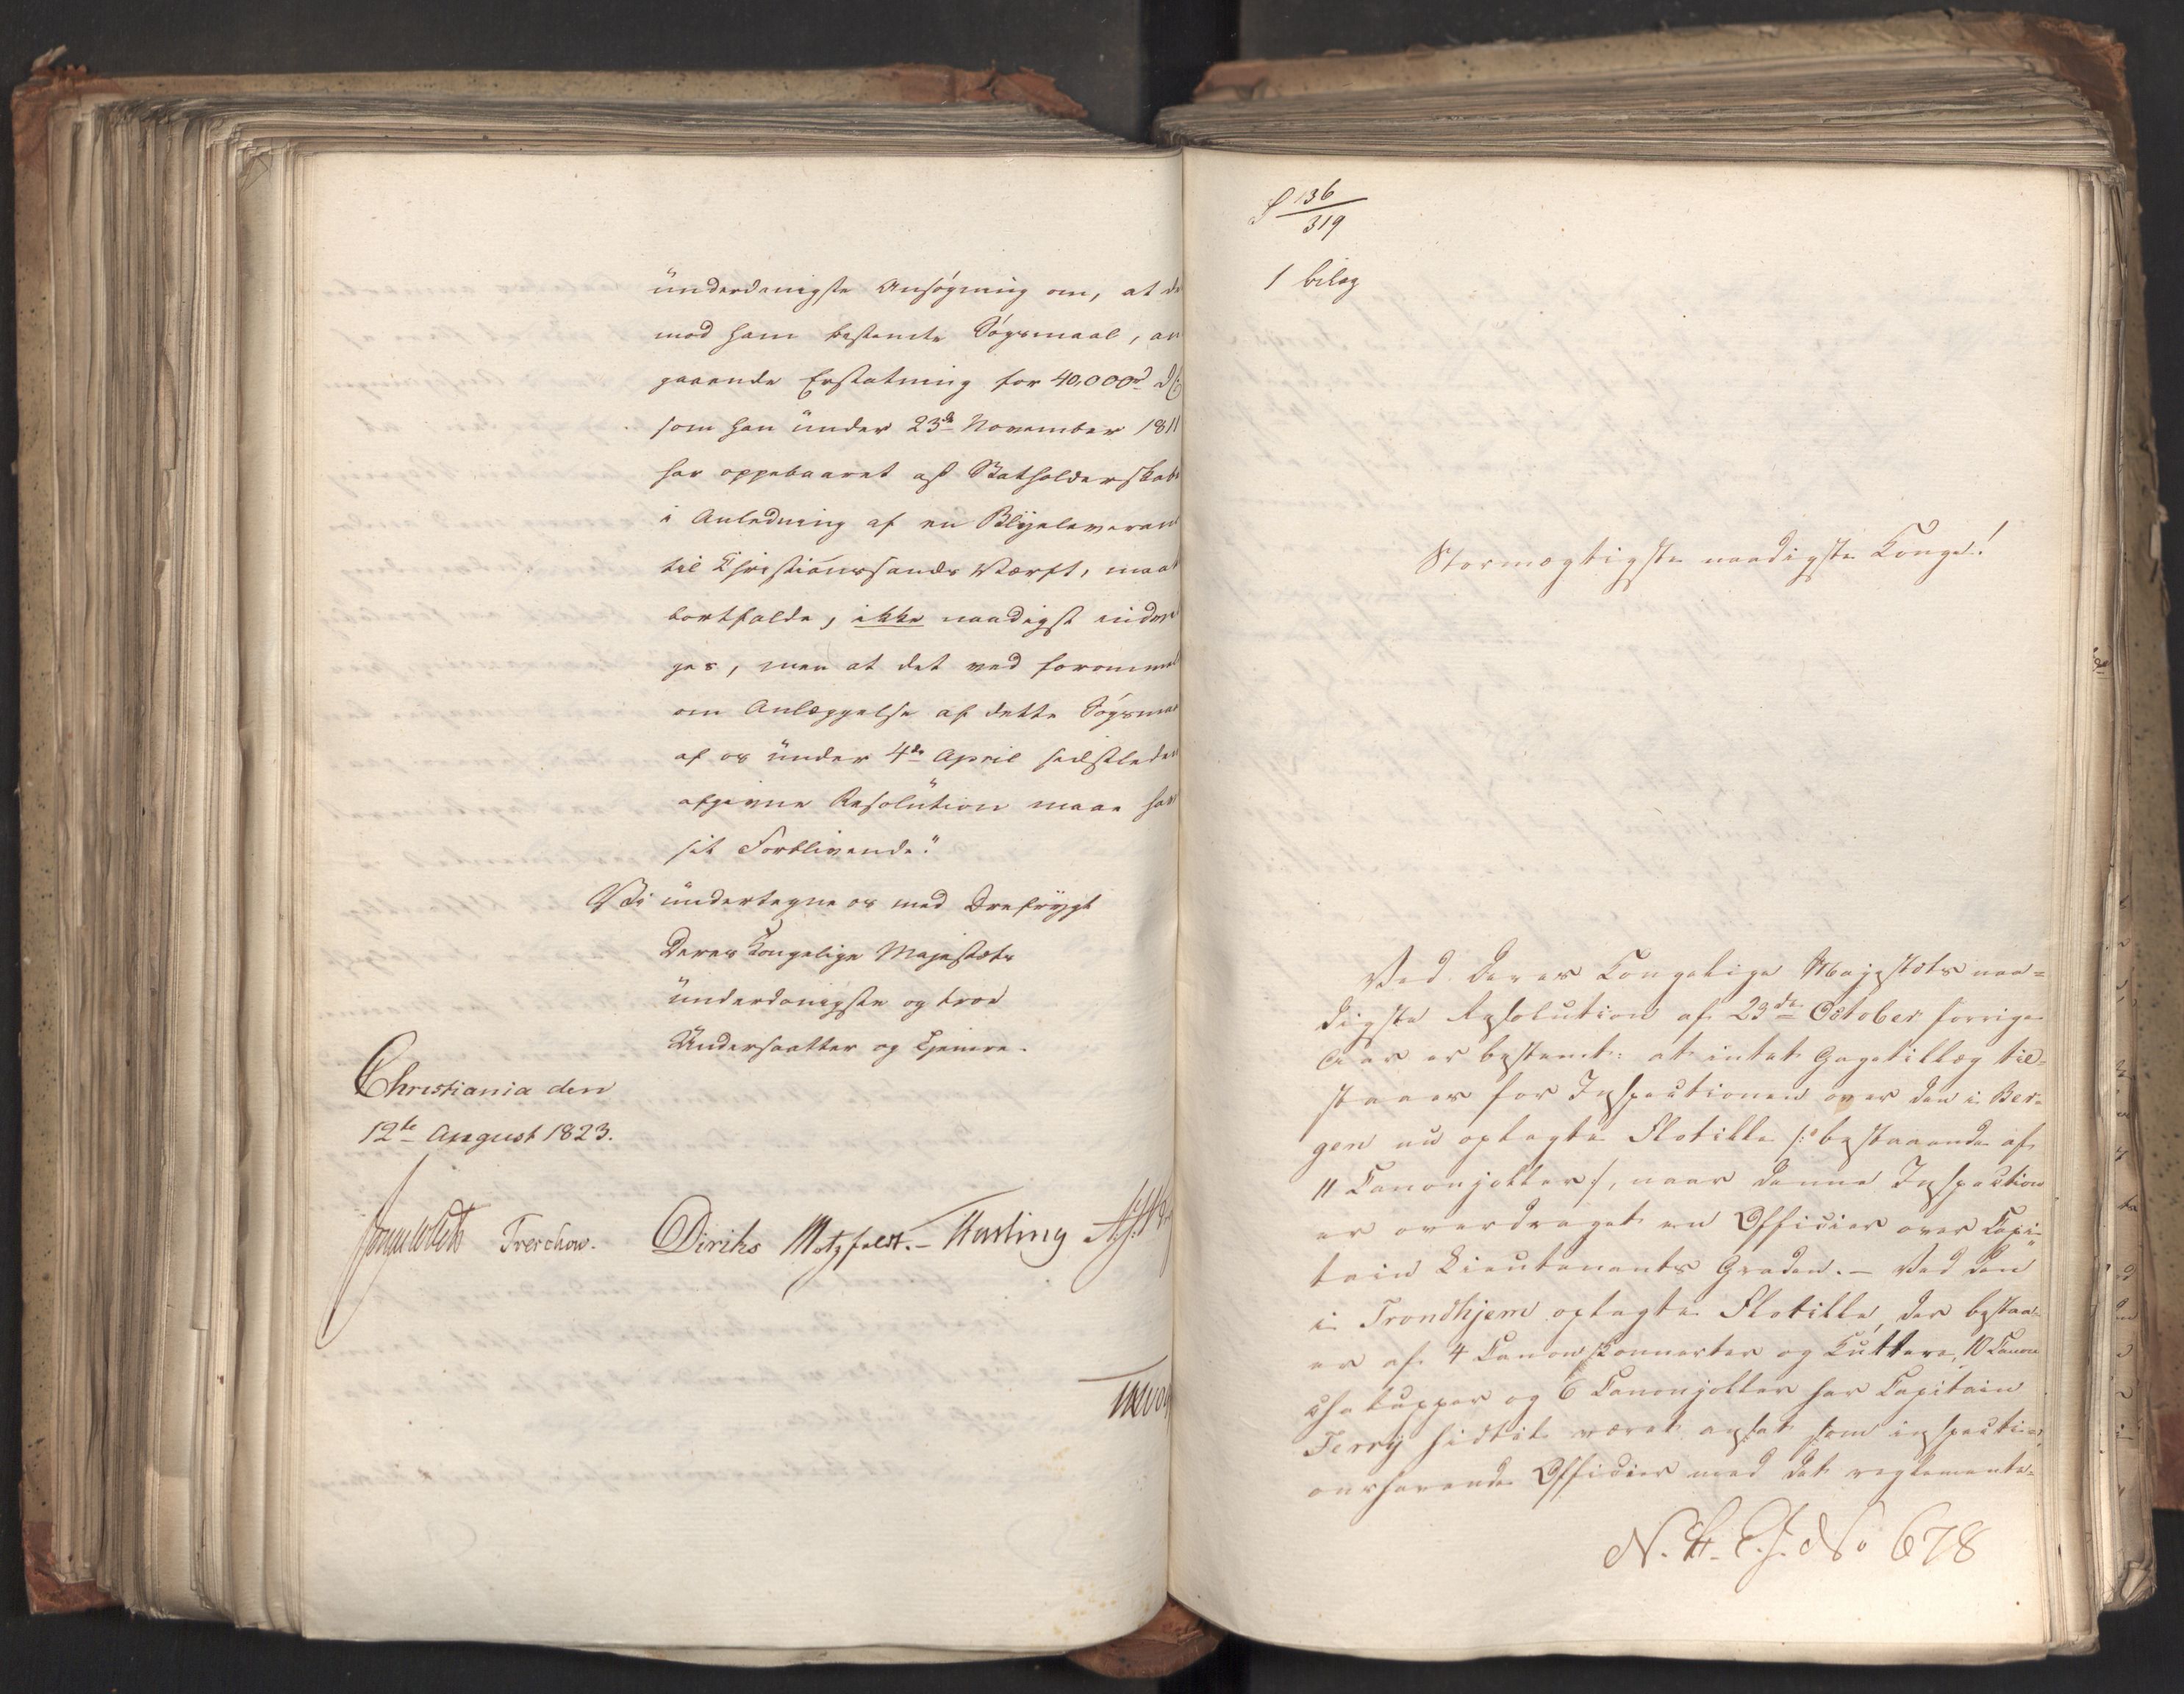 ünderdanigste Ansøgning om, at de
mod ham bestemte Søgsmaal, an
gaaende Erstatning for 40,000 rd DC
som han ünder 23de November 1811
har oppebaaret af Statholderskabe
i Anledning af en Blyeleveran
til Christianssands Værft, maat
bortfalde, ikke naadigst indvil
ges, men at det ved forommel
om Anlæggelse af dette Søgsmaa
af os ünder 4de April sidstleden
afgivne Resolution maae hav
sit Forblivende."
Vi ündertegne os med Ærefrygt
Deres Kongelige Majestæts
ünderdanigste og troe
Ündersaatter og Tjenere.
Christiania den
12te August 1823.
Sommerhielm Treschow. Diriks Motzfeldt. - Fasting
P 136/319
1 bilag
Stormægtigste naadigste Konge!
Ved Deres Kongelige Majestæts naa=
digste Resolution af 23de October forrige
Aar er bestemt: at intet Gagetillæg til=
staaes for Inspectionen over den i Ber=
gen nu oplagte Flotille /: bestaaende af
11 Canonjoller :/, naar denne Inspection
er overdraget en Officier over Capi=
tain Lieutenants Graden. - Ved den
i Trondhjem oplagte Flotille, der bestaa=
er af 4 Canonskonnerter og Kuttere, 10 Canon
Chalupper og 6 Canonjoller har Capitain
Ferry hidtil været ansat som inspecti=
onshavende Officier med det reglements=
N. H. C. J. No 678